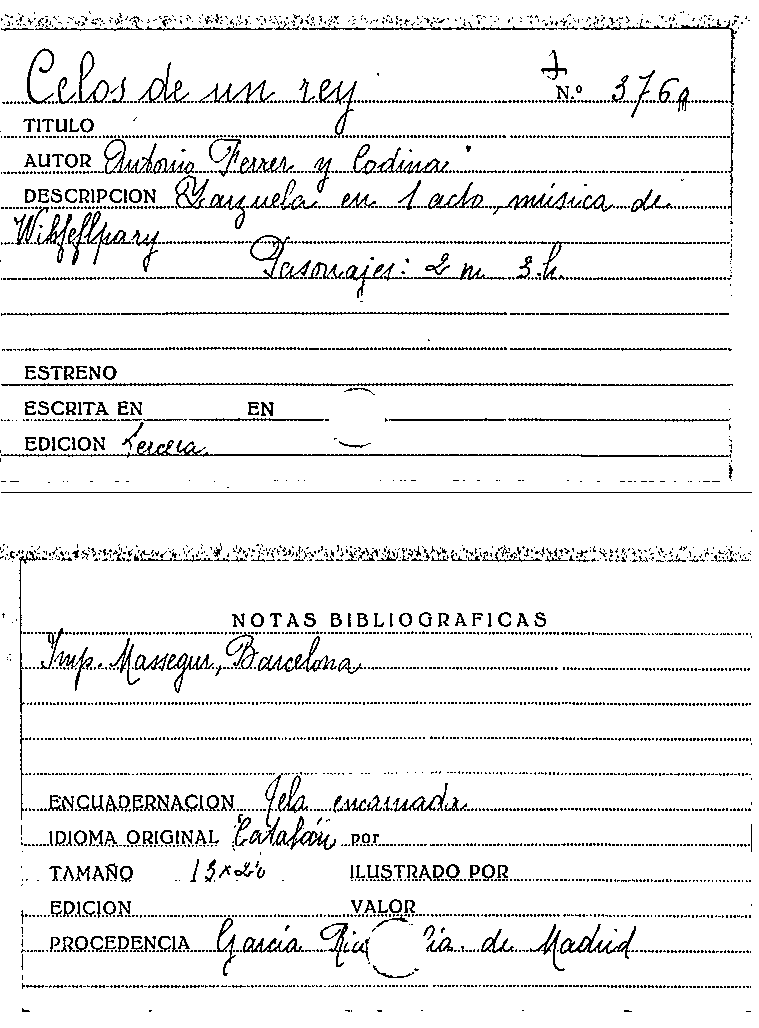 Celos de un rey
N.º 376
TITULO
AUTOR Antonio Ferrer y Codina
DESCRIPCION Zarzuela en 1 acto, música de
Pasonajes: 2 m 3 h.
ESTRENO
ESCRITA EN EN
EDICION tercera.
NOTAS BIBLIOGRAFICAS
Imp. Massegur, Barcelona
ENCUADERNACION Tela encarnada
IDIOMA ORIGINAL Catalán por
TAMAÑO 13x20 ILUSTRADO POR
EDICION VALOR
PROCEDENCIA García Rico ía. de Madrid